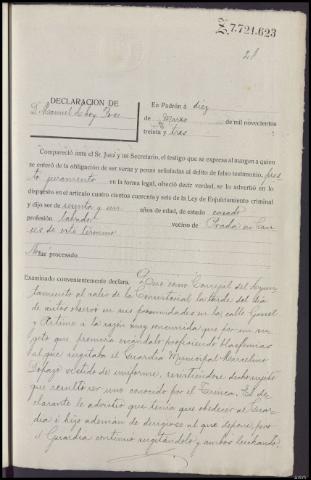 Z.7.721.623
21
DECLARACION DE
D. Manuel
En Padrón a diez
de Marzo de mil novecientos
treinta y tres
Compareció ante el Sr. Juez y su Secretario, el testigo que se expresa al margen a quien
se enteró de la obligación de ser veraz y penas señaladas al delito de falso testimonio, pres
tó juramento en la forma legal, ofreció decir verdad, se le advertió lo
dispuesto en el artículo cuatro cientos cuarenta y seis de la Ley de Enjuiciamiento criminal
y dijo ser de y un años de edad, de estado casado
profesión labrador vecino de
de este término
No fue procesado
Examinado convenientemente declara: Que como Concejal del Ayun
tamiento al salir de la Consistorial la tarde del día
de autos observó en sus proximidades en la calle
y a la sazón muy concurrida que por un su
jeto que promovía escándalo profiriendo blasfemias
al que sujetaba el Guardia Municipal Marcelino
vestido de uniforme, resistiéndose dicho sujeto
que resultó ser uno conocido por el El de
clarante le advirtió que tenía que obedecer al Guar
dia e hizo ademán de dirigirse al que depone pero
el Guardia continuó sujetándolo y ambos luchando